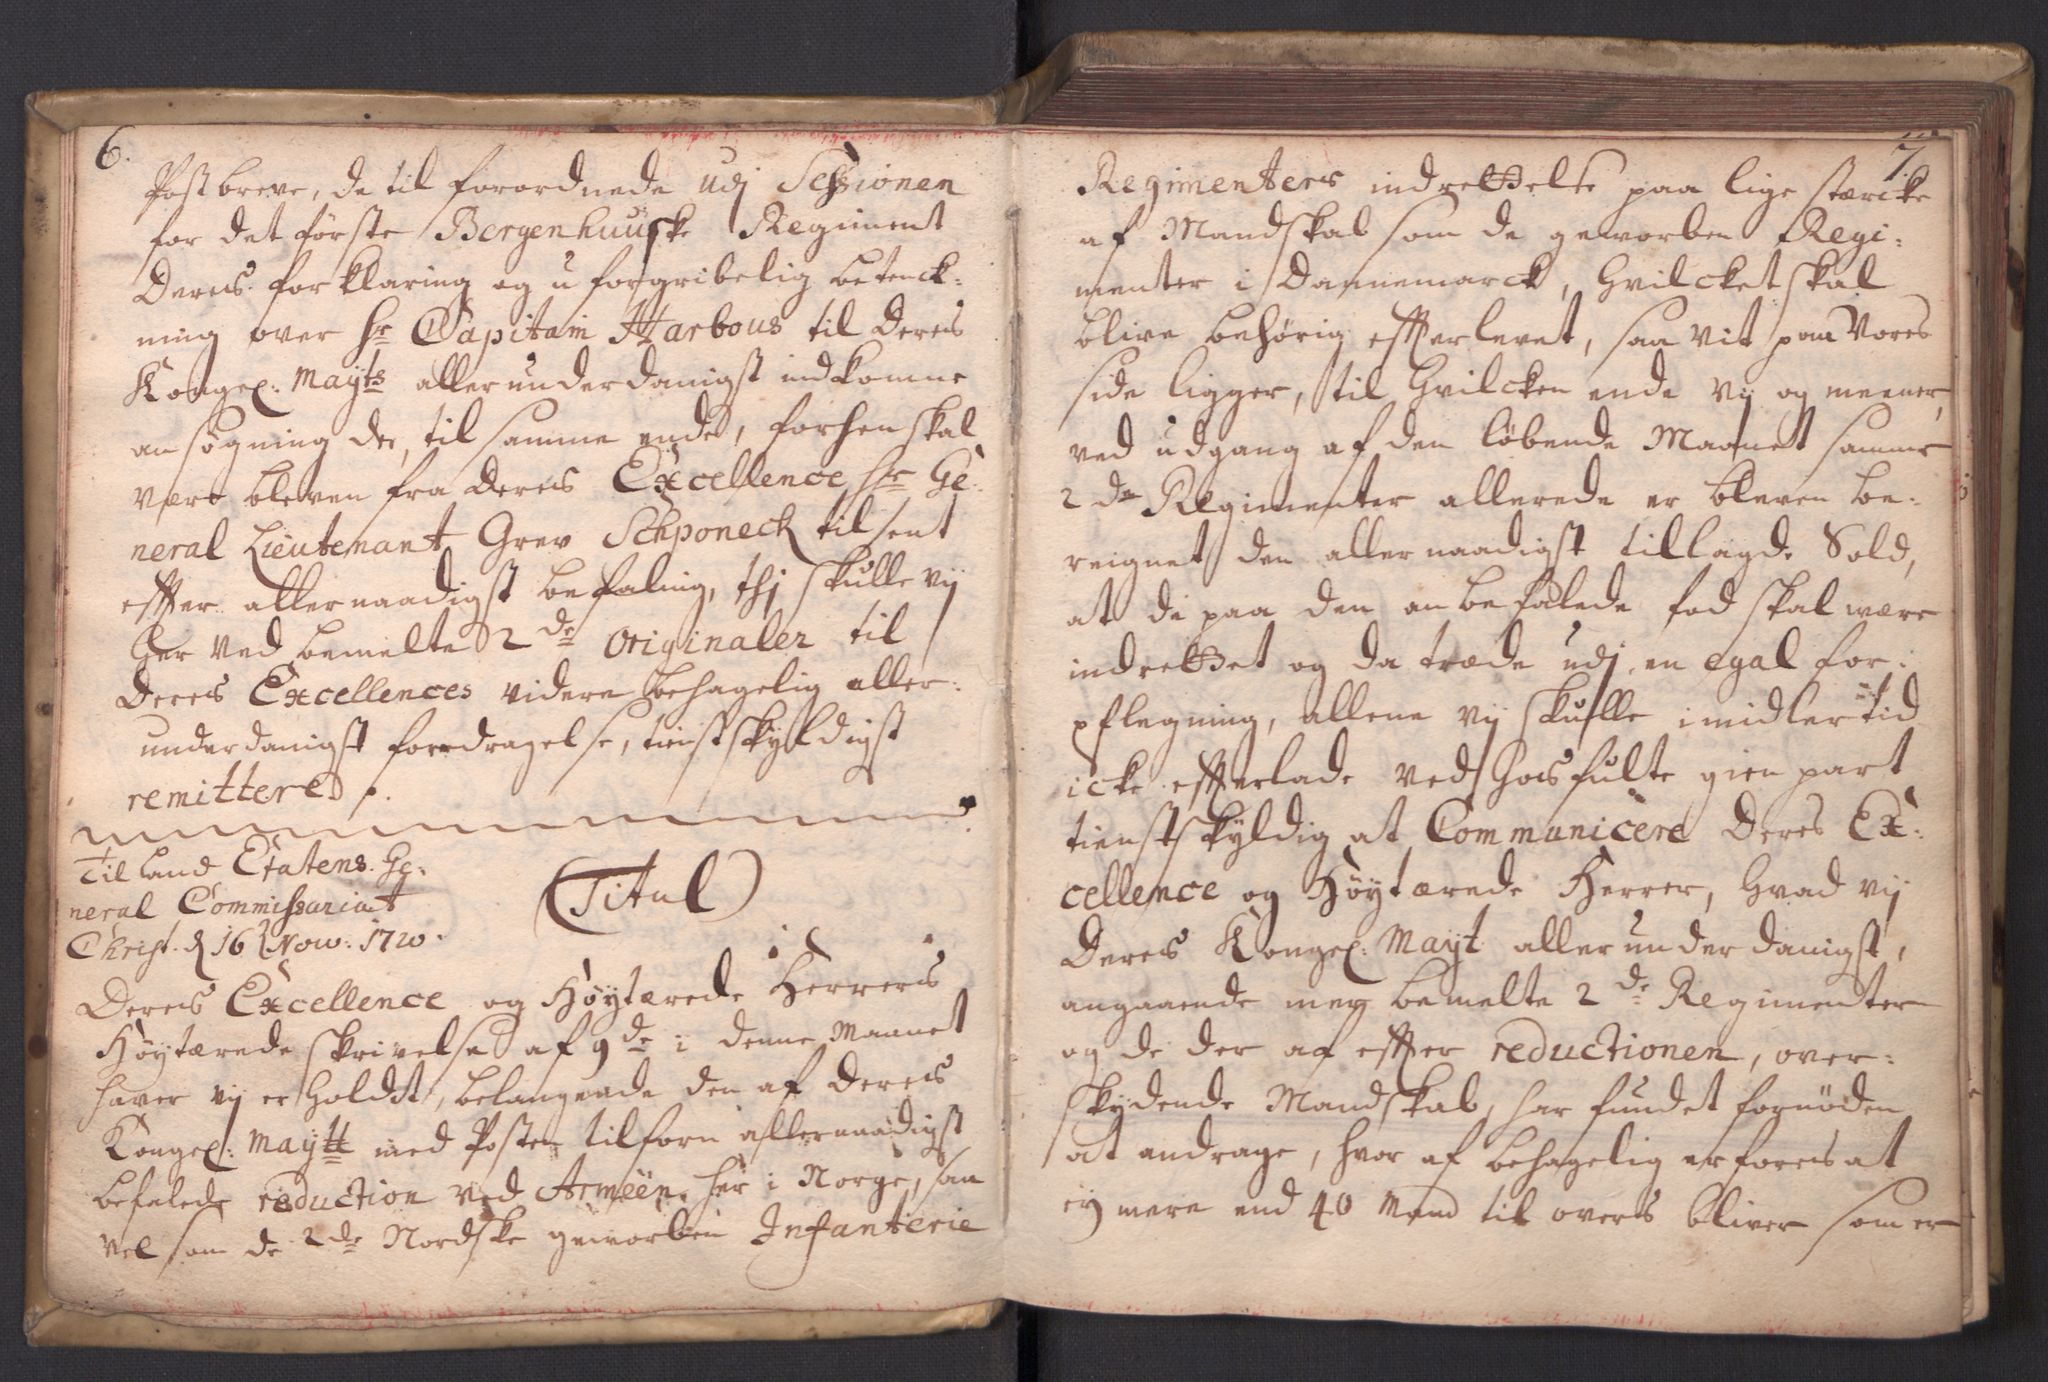 6.
Postbreve, de til forordnede udj Sessionen
for det förste Bergenhuuske Regiment
Deris forklaring og u forgribelig betenck-
ning over Hr Capitain Harbous til Deris
Kongel: Mayts allerunderdanigst indkomne
ansögning der, til samme ende, forhen skal
være bleven fra Deris Excellence Hr Ge-
neral Lieutenant Grev Schponeck tilsent
effter allernaadigst befaling, thj skulle vij
her ved bemelte 2de originaler til
Deris Excellences videre behagelig aller-
underdanigst foredragelse, tienstskyldigst
remittere.
Til Land Etatens Ge-
neral Commissariat
Christ. d 16 Nov: 1720.
(Titul)
Deris Excellence og Höytærede Herreris
Höytærede skrivelse af 9de i denne Maanet
haver vij er holdt, belangende den af Deris
Kongel: Maytt med Posten tilforn allernaadigst
befalede reduction ved Armeen her i Norge, saa
vel som de 2de Nordske geworben Infanterie
7.
Regimenters indrettelse paa lige stærcke
af Mandskab som de geworben Regi-
menter i Dannemarck, hvilcket skal
blive behörig effterlevet, saa vit paa Vores
side ligger, til hvilcken ende vij og meener,
ved udgang af den löbende Maanet samme
2de Regimenter allerede er bleven be-
reignet den allernaadigst tillagde Sold,
at de paa den anbefalede fod skal være
indrettet og da træde udj en egal for-
pflegning, allene vij skulle imidlertid
icke effterlade ved hosfulte gien part
tienstskyldig at Communicere Deres Ex-
cellence og Höytærede Herrer, hvad vij
Deris Kongel: Mayt allerunderdanigst,
angaaende meer bemelte 2de Regimenter
og de der af effter reductionen, over-
skydende Mandskab, har fundet fornöden
at andrage, hvor af behagelig erforis at
ej mere end 40 Mand til overs bliver som er